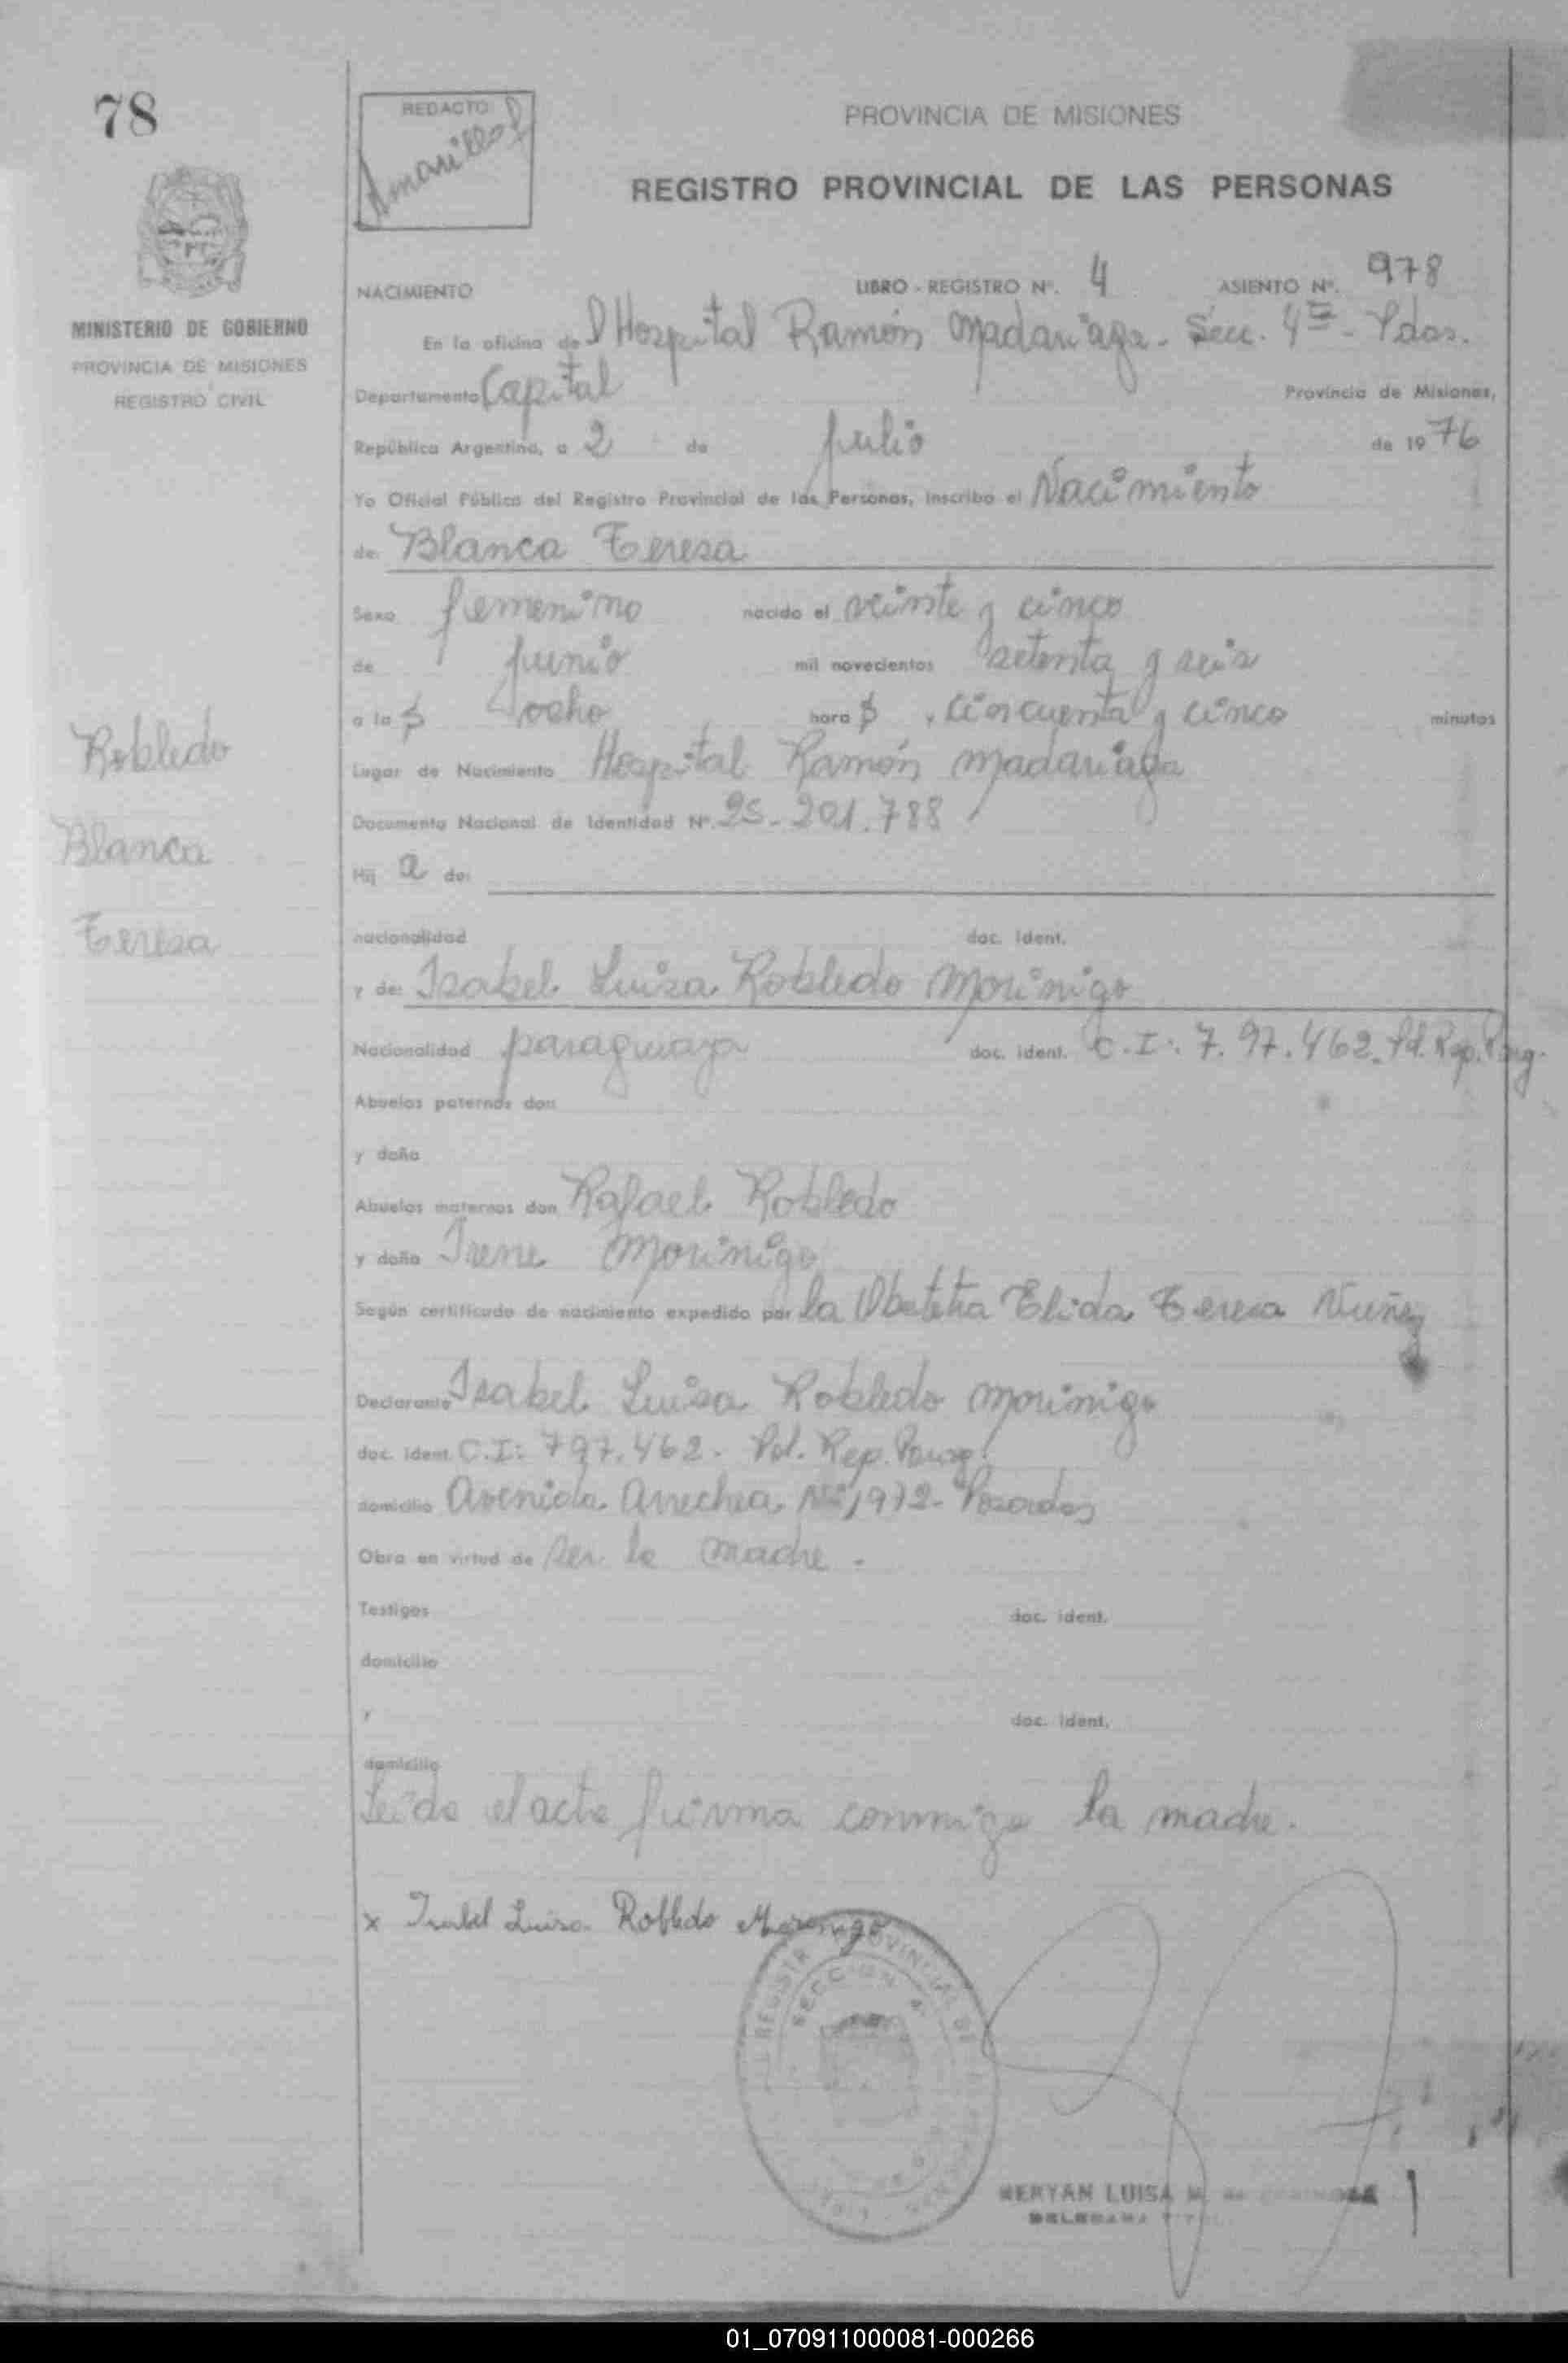 78
REDACTO
Amarilla
PROVINCIA DE MISIONES
REGISTRO PROVINCIAL DE LAS PERSONAS
MINISTERIO DE GOBIERNO
PROVINCIA DE MISIONES
REGISTRO CIVIL
NACIMIENTO LIBRO - REGISTRO Nº. 4 ASIENTO Nº. 978
En la oficina del Hospital Ramón Madariaga - Secc. 4ta - Pdas.
Departamento Capital Provincia de Misiones,
República Argentina, a 2 de julio de 1976
Yo Oficial Público del Registro Provincial de las Personas, inscribo el Nacimiento
de: Blanca Teresa
Sexo femenino nacido el veinte y cinco
de junio mil novecientos setenta y seis
a la s ocho hora s, cincuenta y cinco minutos
Lugar de Nacimiento Hospital Ramón Madariaga
Documento Nacional de Identidad Nº. 25-201.788
Hij a de:
nacionalidad doc. ident.
y de: Isabel Luisa Robledo Morinigo
Nacionalidad paraguaya doc. ident. C.I: 7.97.462. Pol. Rep. Parag.
Abuelos paternos don
y doña
Abuelos maternos don Rafael Robledo
y doña Irene Morinigo
Según certificado de nacimiento expedido por la Obstetra Elida Teresa Nuñez
Declarante Isabel Luisa Robledo Morinigo
doc. ident. C.I: 797.462 - Pol. Rep. Parag.
domicilio Avenida Arrechea Nº 1972 - Posadas
Obra en virtud de ser la madre.
Testigos doc. ident.
domicilio
y doc. ident.
domicilio
Leída el acta firma conmigo la madre.
x Isabel Luisa Robledo Morinigo
Robledo
Blanca
Teresa
REGISTRO PROVINCIAL DE
SECCION 4
MERYAN LUISA M.
01_070911000081-000266